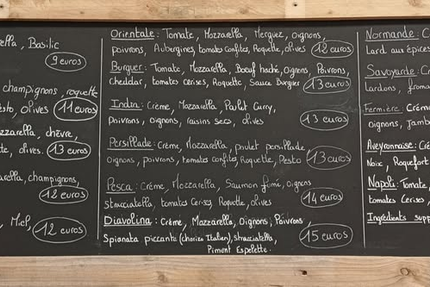 ella, Basilic
9 euros
champignons, roquette
esto, olives 11 euros
zzarella, chèvre,
te, olives. 13 euros
arella, champignons,
12 euros
, Miel
12 euros
Orientale: Tomate, Mozzarella, Merguez, oignons,
poivrons, Aubergines, tomates confites, Roquette, olives 12 euros
Burguer: Tomate, Mozzarella, Boeuf haché, oignons, Poivrons,
cheddar, tomates cerises, Roquette, Sauce Burger 13 euros
Indian: Crème, Mozzarella, Poulet Curry,
Poivrons, oignons, raisins secs, olives 13 euros
Persillade: Crème, Mozzarella, poulet persillade
oignons, poivrons, tomates confites, Roquette, Pesto 13 euros
Pesca: Crème, Mozzarella, Saumon fumé, oignons
stracciatella, tomates Cerises, Roquette, olives 14 euros
Diavolina: Crème, Mozzarella, Oignons, Poivrons,
Spianata piccante (chorizo Italien), stracciatella, 15 euros
Piment Espelette.
Normande: C
Lard aux épices
Savoyarde: Cr
Lardons, froma
Fermière: Crèm
oignons, Jamb
Aveyronnaise: Cr
Noix, Roquefort
Napoli: Tomate,
tomates Cerises,
Ingrédients supp